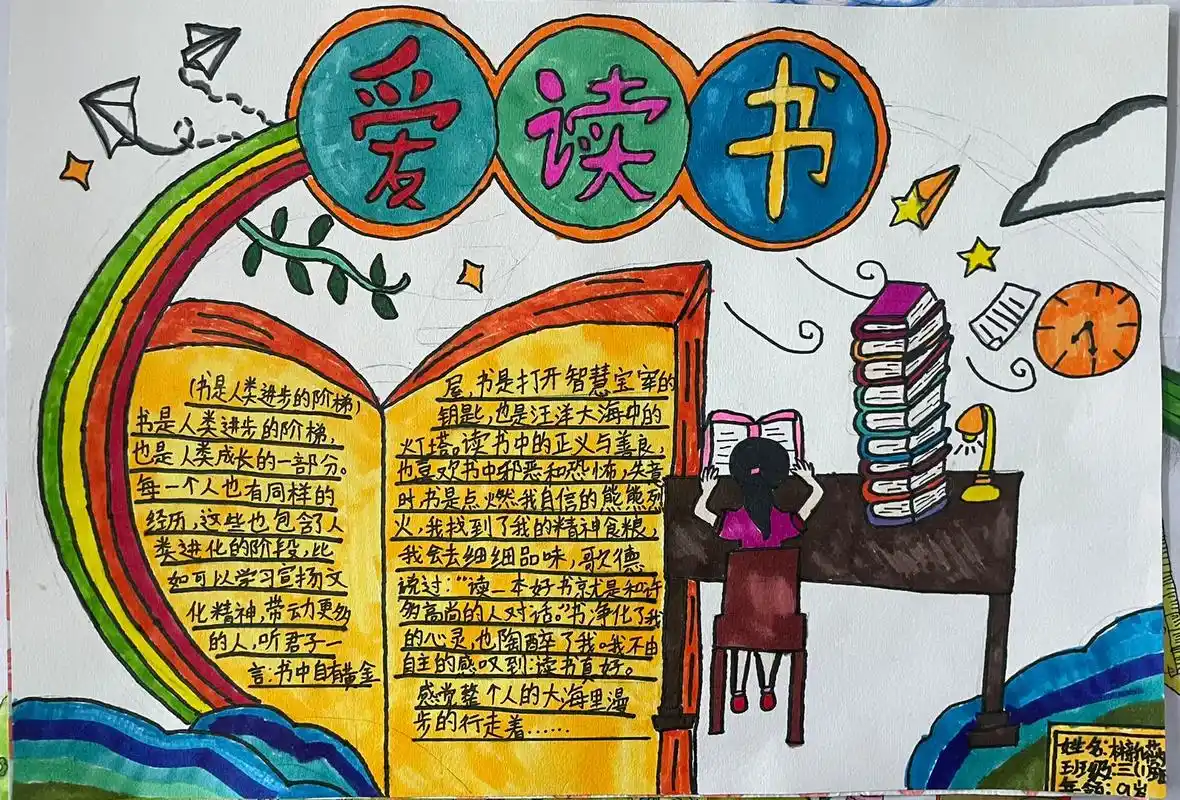 爱读书
(书是人类进步的阶梯)
书是人类进步的阶梯,
也是人类成长的一部分。
每一个人也有同样的
经历,这些也包含了人
类进化的阶段,比
如可以学习宣扬文
化精神,带动更多
的人,听君子一
言:书中自有黄金
屋,书是打开智慧宝库的
钥匙,也是汪洋大海中的
灯塔。读书中的正义与善良,
也喜欢书中邪恶和恐怖,失意
时书是点燃我自信的熊熊烈
火,我找到了我的精神食粮,
我会去细细品味,歌德
说过:“读一本好书就是和许
多高尚的人对话。”书净化了我
的心灵,也陶醉了我。我不由
自主的感叹到:读书真好。
感觉整个人的大海里漫
步的行走着……
姓名:
班级:三(1)班
年龄:9岁